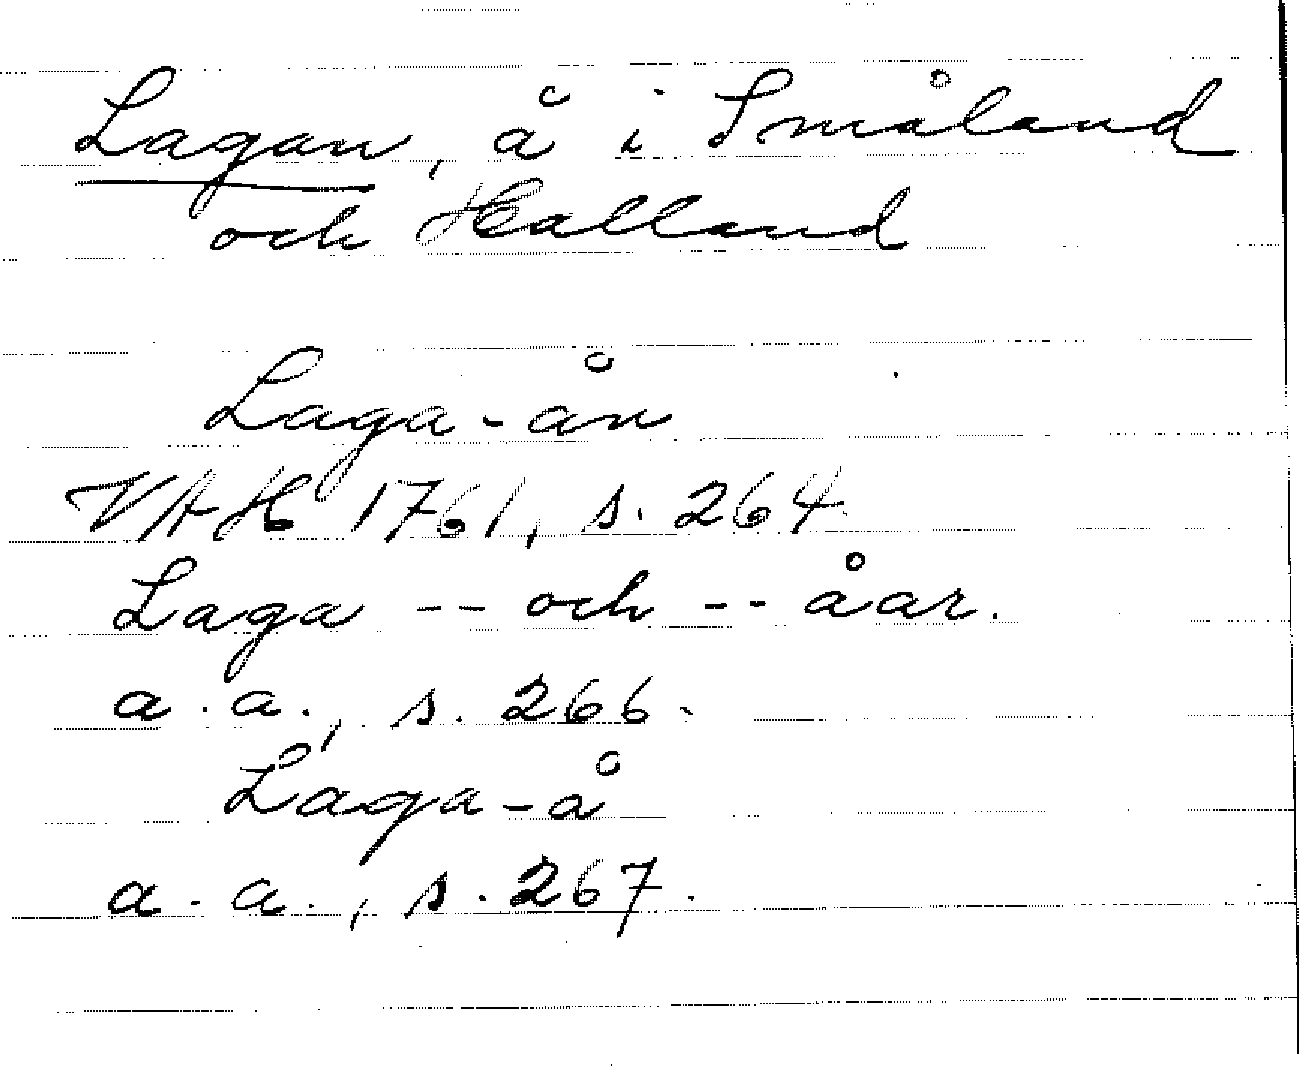 Lagan, å i Småland
och Halland
Laga-ån
VAH 1761, s. 264.
Laga -- och -- åar.
a.a., s. 266.
Laga-å
a.a., s. 267.